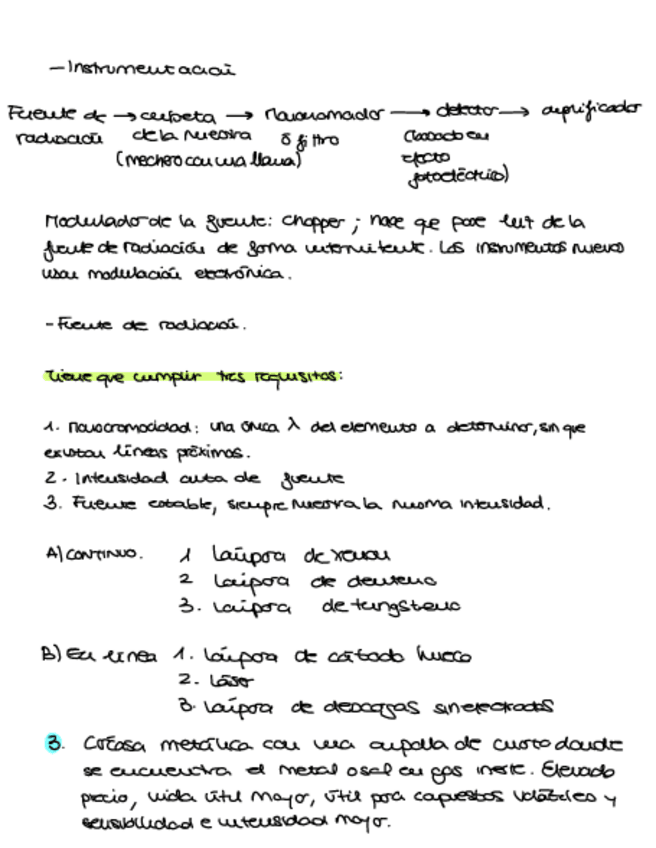 - Instrumentación
Fuente de → cubeta → Monocromador → detector → amplificador
radiación de la muestra ó filtro (basado en
(mechero con una llama) efecto
fotoeléctrico)
Modulador de la fuente: Chopper ; hace que pase luz de la
fuente de radiación de forma intermitente. Los instrumentos nuevos
usan modulación electrónica.
- Fuente de radiación.
Tiene que cumplir tres requisitos:
1. Monocromacidad: una única λ del elemento a determinar, sin que
existan líneas próximas.
2. Intensidad alta de fuente
3. Fuente estable, siempre muestra la misma intensidad.
A) CONTINUO. 1 Lámpara de xenon
2 Lámpara de deuterio
3. Lámpara de tungsteno
B) En línea 1. Lámpara de cátodo hueco
2. Láser
3. Lámpara de descargas sin electrodos
3. Carcasa metálica con una ampolla de cuarzo donde
se encuentra el metal o sal en gas inerte. Elevado
precio, vida útil mayor, útil para compuestos volátiles y
sensibilidad e intensidad mayor.